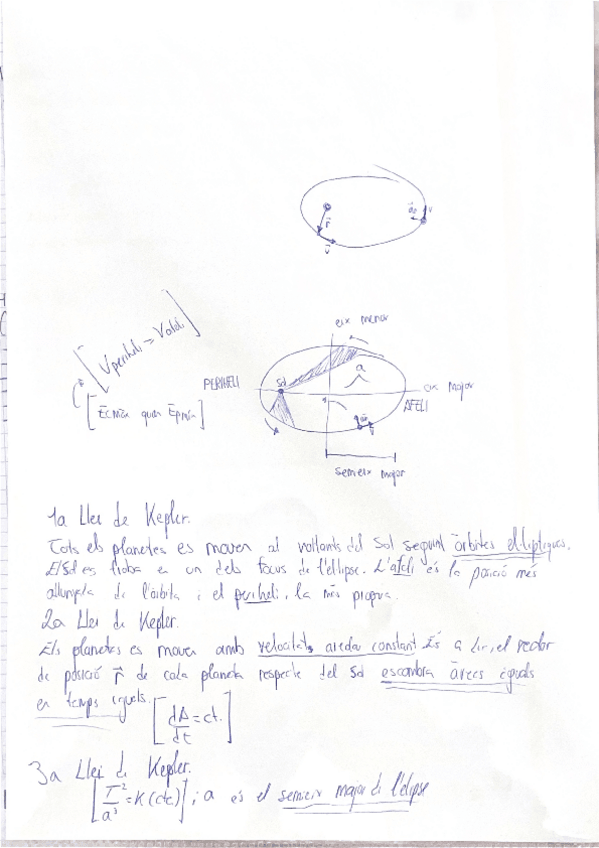 a⃗c v
r⃗
v⃗
eix menor
[Vperiheli > Vafeli]
PERIHELI Sol a eix major
AFELI
[Ecmàx quan Epmín]
v⃗
semieix major
1a Llei de Kepler.
Tots els planetes es mouen al voltants del Sol seguint òrbites el·líptiques.
El Sol es troba en un dels focus de l'el·lipse. L'afeli és la posició més
allunyada de l'òrbita i el periheli, la més propera.
2a Llei de Kepler.
Els planetes es mouen amb velocitat areolar constant És a dir, el vector
de posició r⃗ de cada planeta respecte del Sol escombra àrees iguals
en temps iguals.
[dA/dt = ct.]
3a Llei de Kepler.
[T²/a³ = K (cte)]; a és el semieix major de l'elipse